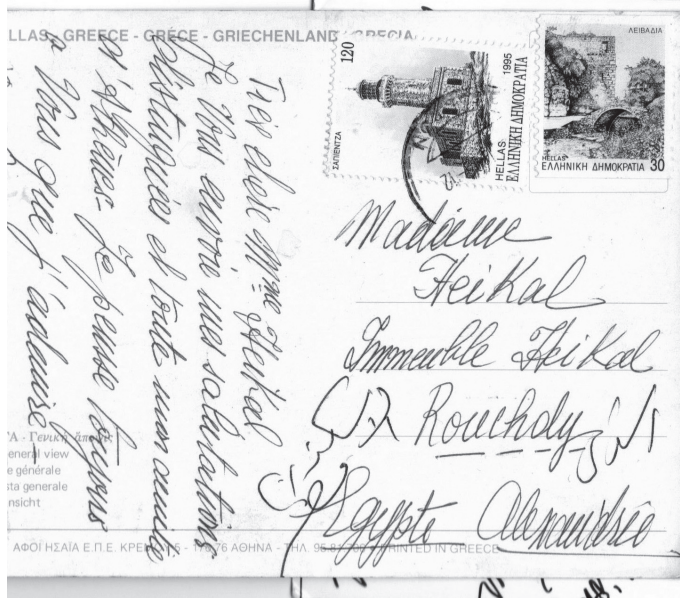 LLAS - GREECE - GRÈCE - GRIECHENLAND - GRECIA
120
ΣΑΠΙΕΝΤΖΑ
1995
HELLAS
ΕΛΛΗΝΙΚΗ ΔΗΜΟΚΡΑΤΙΑ
ΛΕΙΒΑΔΙΑ
HELLAS
ΕΛΛΗΝΙΚΗ ΔΗΜΟΚΡΑΤΙΑ 30
Très chère Mme Heikal
Je Vous envoie mes salutations
distinguées et toute mon amitié
d'Athènes - Je pense toujours
à Vous que j'admire
Madame
Heikal
Immeuble Heikal
Rouchdy
Egypte Alexandrie
Γενική ἄποψις
eneral view
e générale
sta generale
nsicht
ΑΦΟΙ ΗΣΑΪΑ Ε.Π.Ε. ΚΡΕΜ
76 ΑΘΗΝΑ - ΤΗΛ.
PRINTED IN GREECE